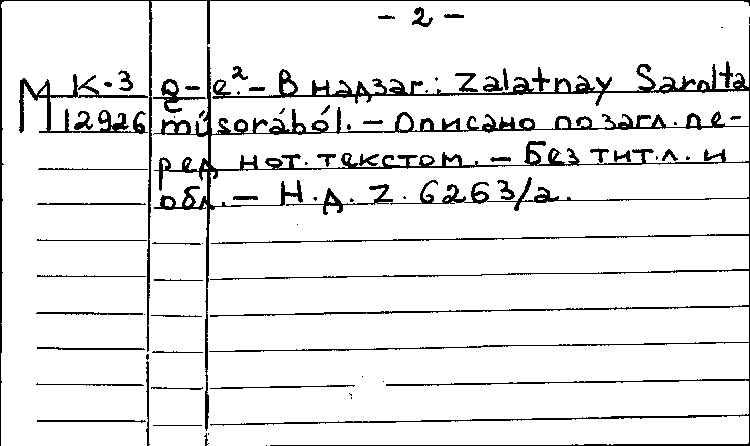 – 2 –
М К-3 a – e². – В надзаг.: Zalatnay Sarolta
12926 műsorából. – Описано по загл. пе-
ред нот. текстом. – Без тит. л. и
обл. – Н. д. Z. 6263/a.